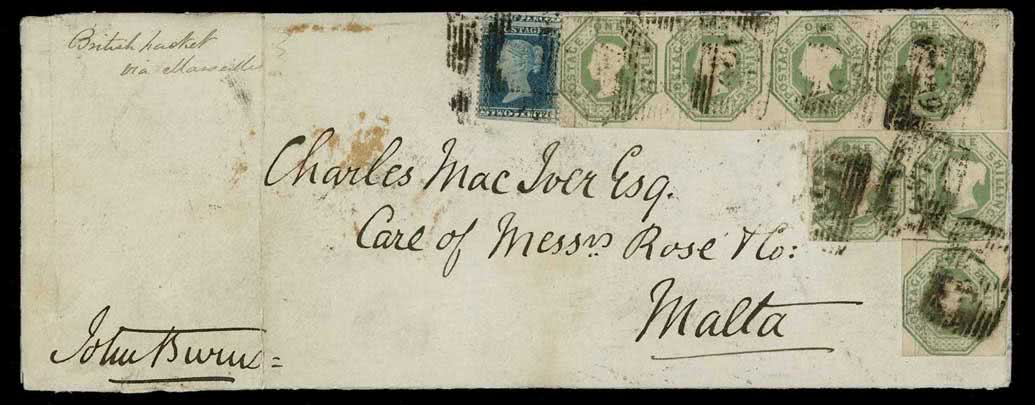 British packet
via Marseilles
POSTAGE
TWO PENCE
POSTAGE ONE SHILLING
POSTAGE ONE SHILLING
POSTAGE ONE SHILLING
POSTAGE ONE SHILLING
Charles Mac Iver Esq.
Care of Messrs Rose & Co:
Malta
John Burns
ONE
ONE SHILLING
POSTAGE